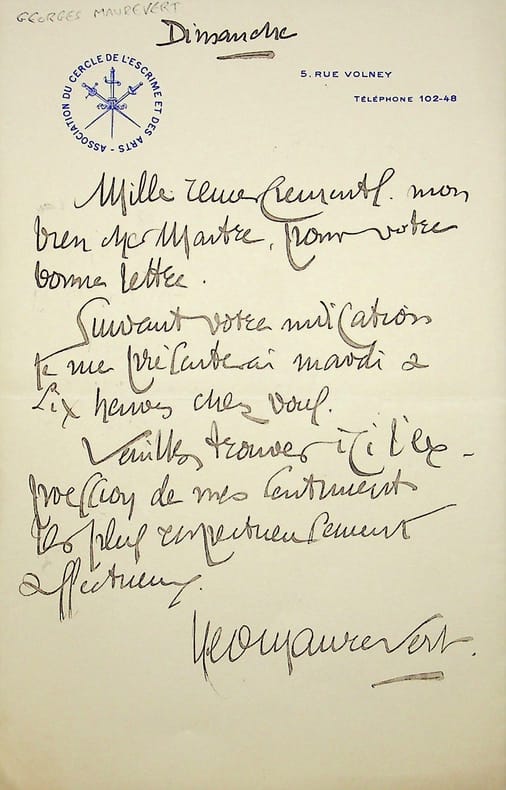 GEORGES MAUREVERT
Dimanche
ASSOCIATION DU CERCLE DE L'ESCRIME ET DES ARTS -
5. RUE VOLNEY
TÉLÉPHONE 102-48
Mille remerciements, mon
bien cher Maître, pour votre
bonne lettre.
Suivant votre indication
je me présenterai mardi à
six heures chez vous.
Veuillez trouver ici l'ex-
pression de mes sentiments
les plus respectueusement
affectueux.
Geo Maurevert.